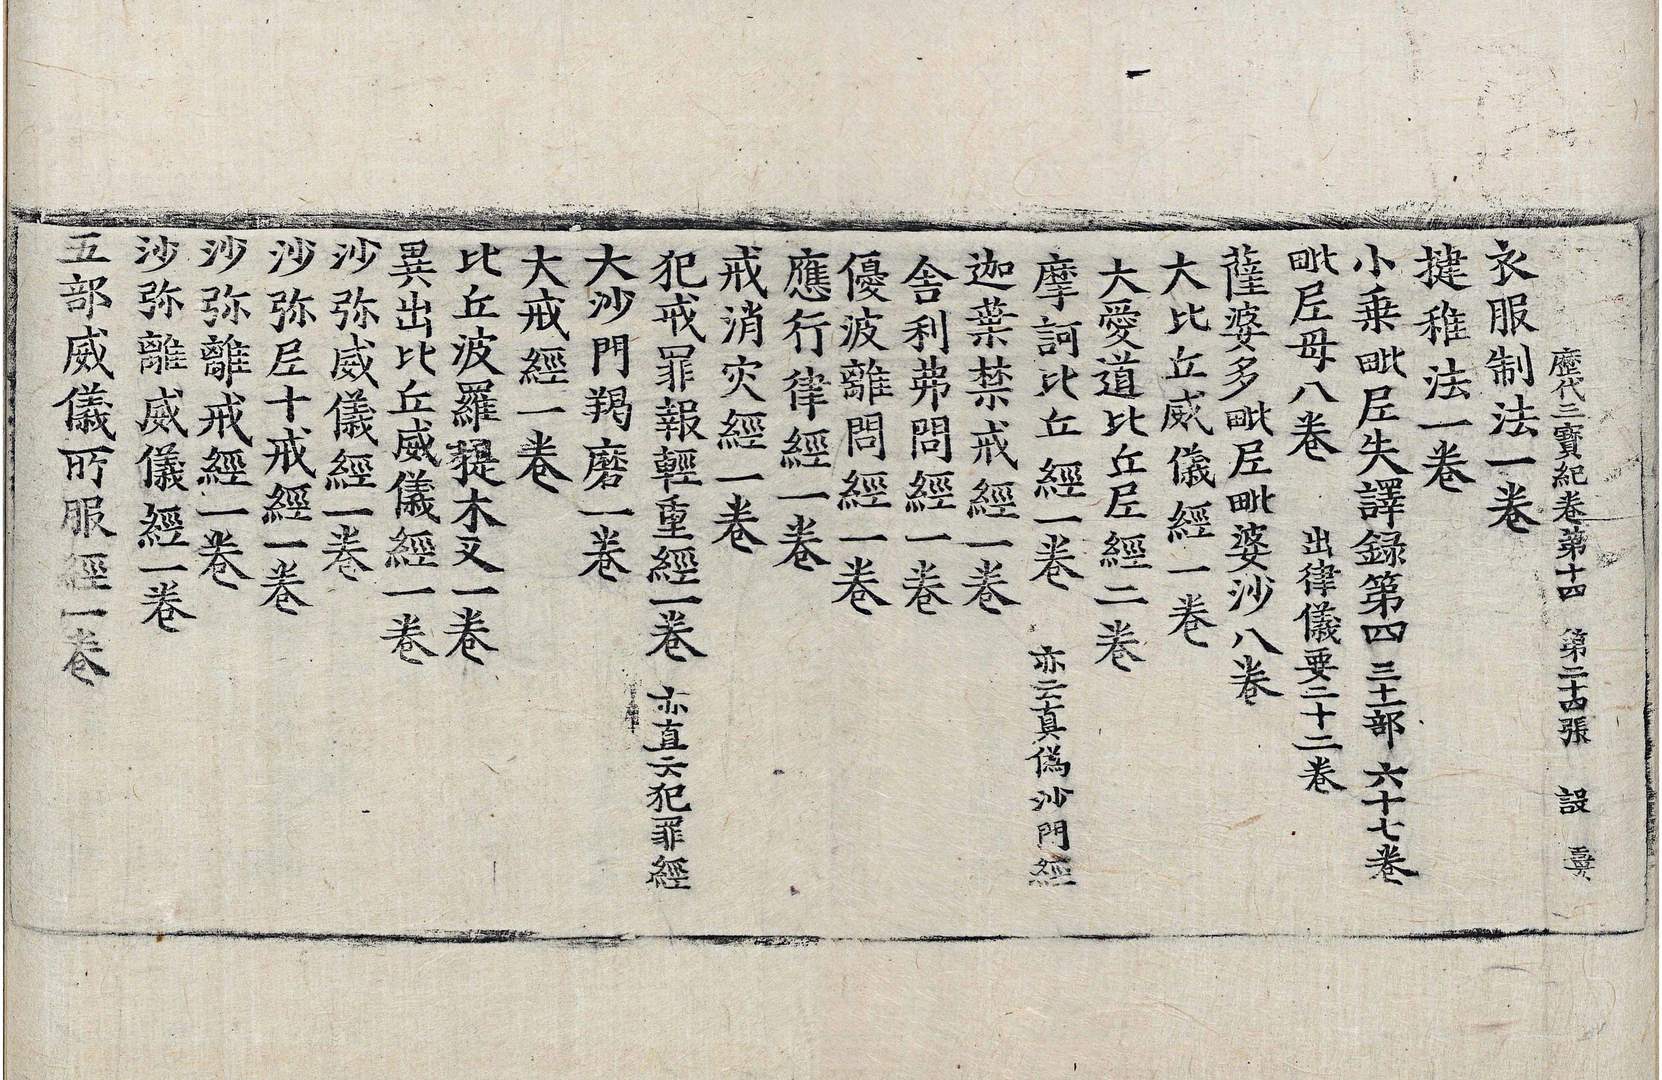 歷代三寶紀卷第十四　第二十四張　設
衣服制法一卷
揵稚法一卷
小乗毗尼失譯録第四 三十一部 六十七卷
毗尼母八卷　出律儀要二十二卷
薩婆多毗尼毗婆沙八卷
大比丘威儀經一卷
大愛道比丘尼經二卷
摩訶比丘經一卷　亦云真僞沙門經
迦葉禁戒經一卷
舎利弗問經一卷
優波離問經一卷
應行律經一卷
戒消灾經一卷
犯戒罪報輕重經一卷　亦直云犯罪經
大沙門羯磨一卷
大戒經一卷
比丘波羅提木叉一卷
異出比丘威儀經一卷
沙弥威儀經一卷
沙弥尼十戒經一卷
沙弥離戒經一卷
沙弥離威儀經一卷
五部威儀所服經一卷